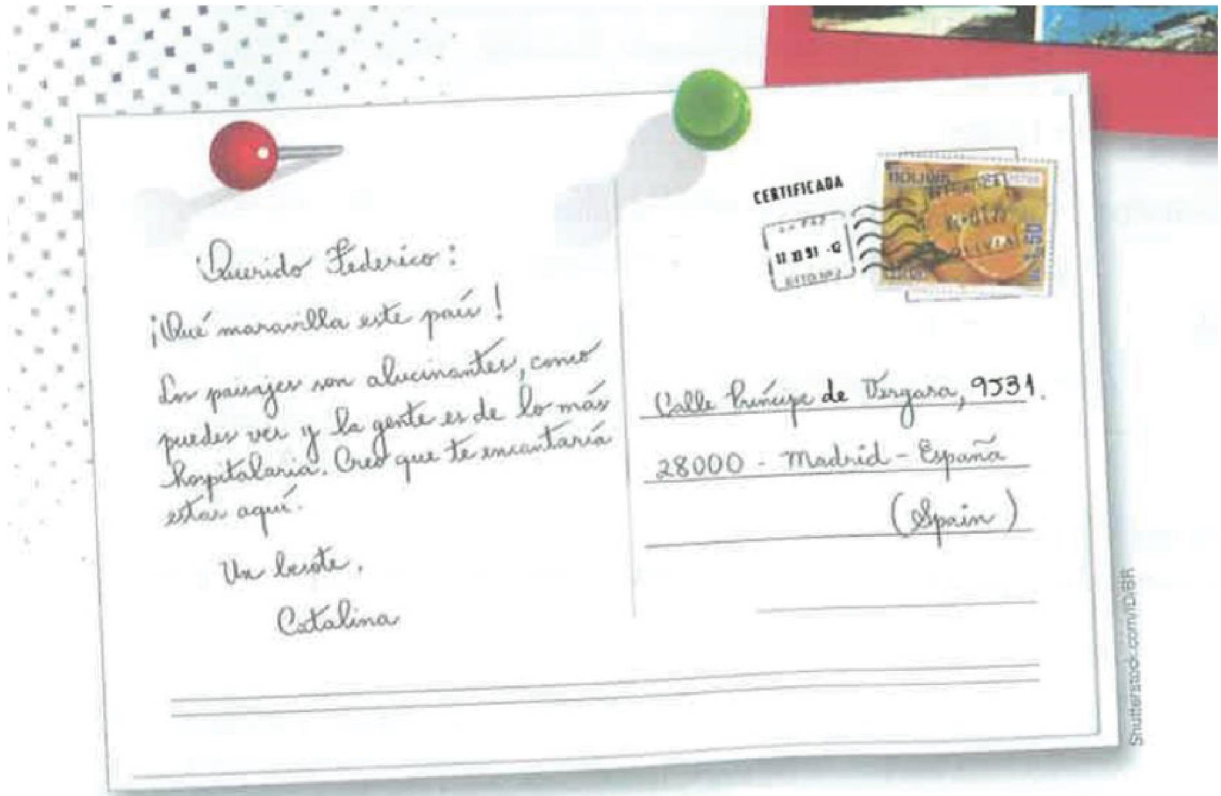 Querido Federico:
¡Qué maravilla este país!
Los paisajes son alucinantes, como
puedes ver y la gente es de lo más
hospitalaria. Creo que te encantaría
estar aquí.
Un besote,
Catalina
CERTIFICADA
BOLIVIA
Calle Príncipe de Vergara, 9531.
28000 - Madrid - España
(Spain)
Shutterstock.com/ID/BR